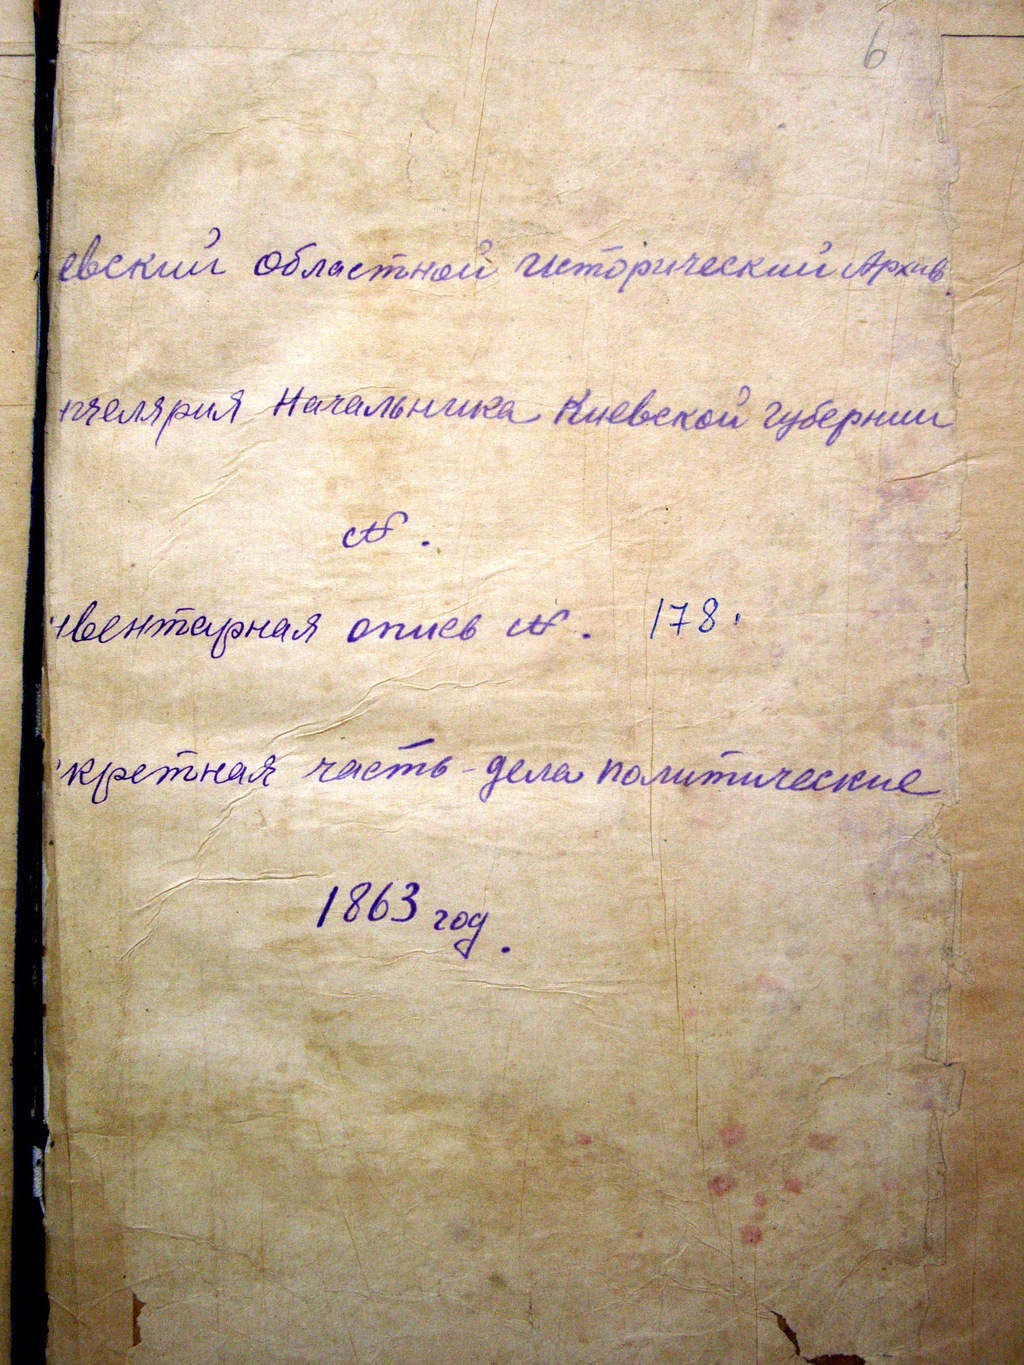 6
евский областной исторический Архив.
нчелярия Начальника Киевской губернии
№.
нвентарная опись №. 178.
кретная часть - дела политические
1863 год.